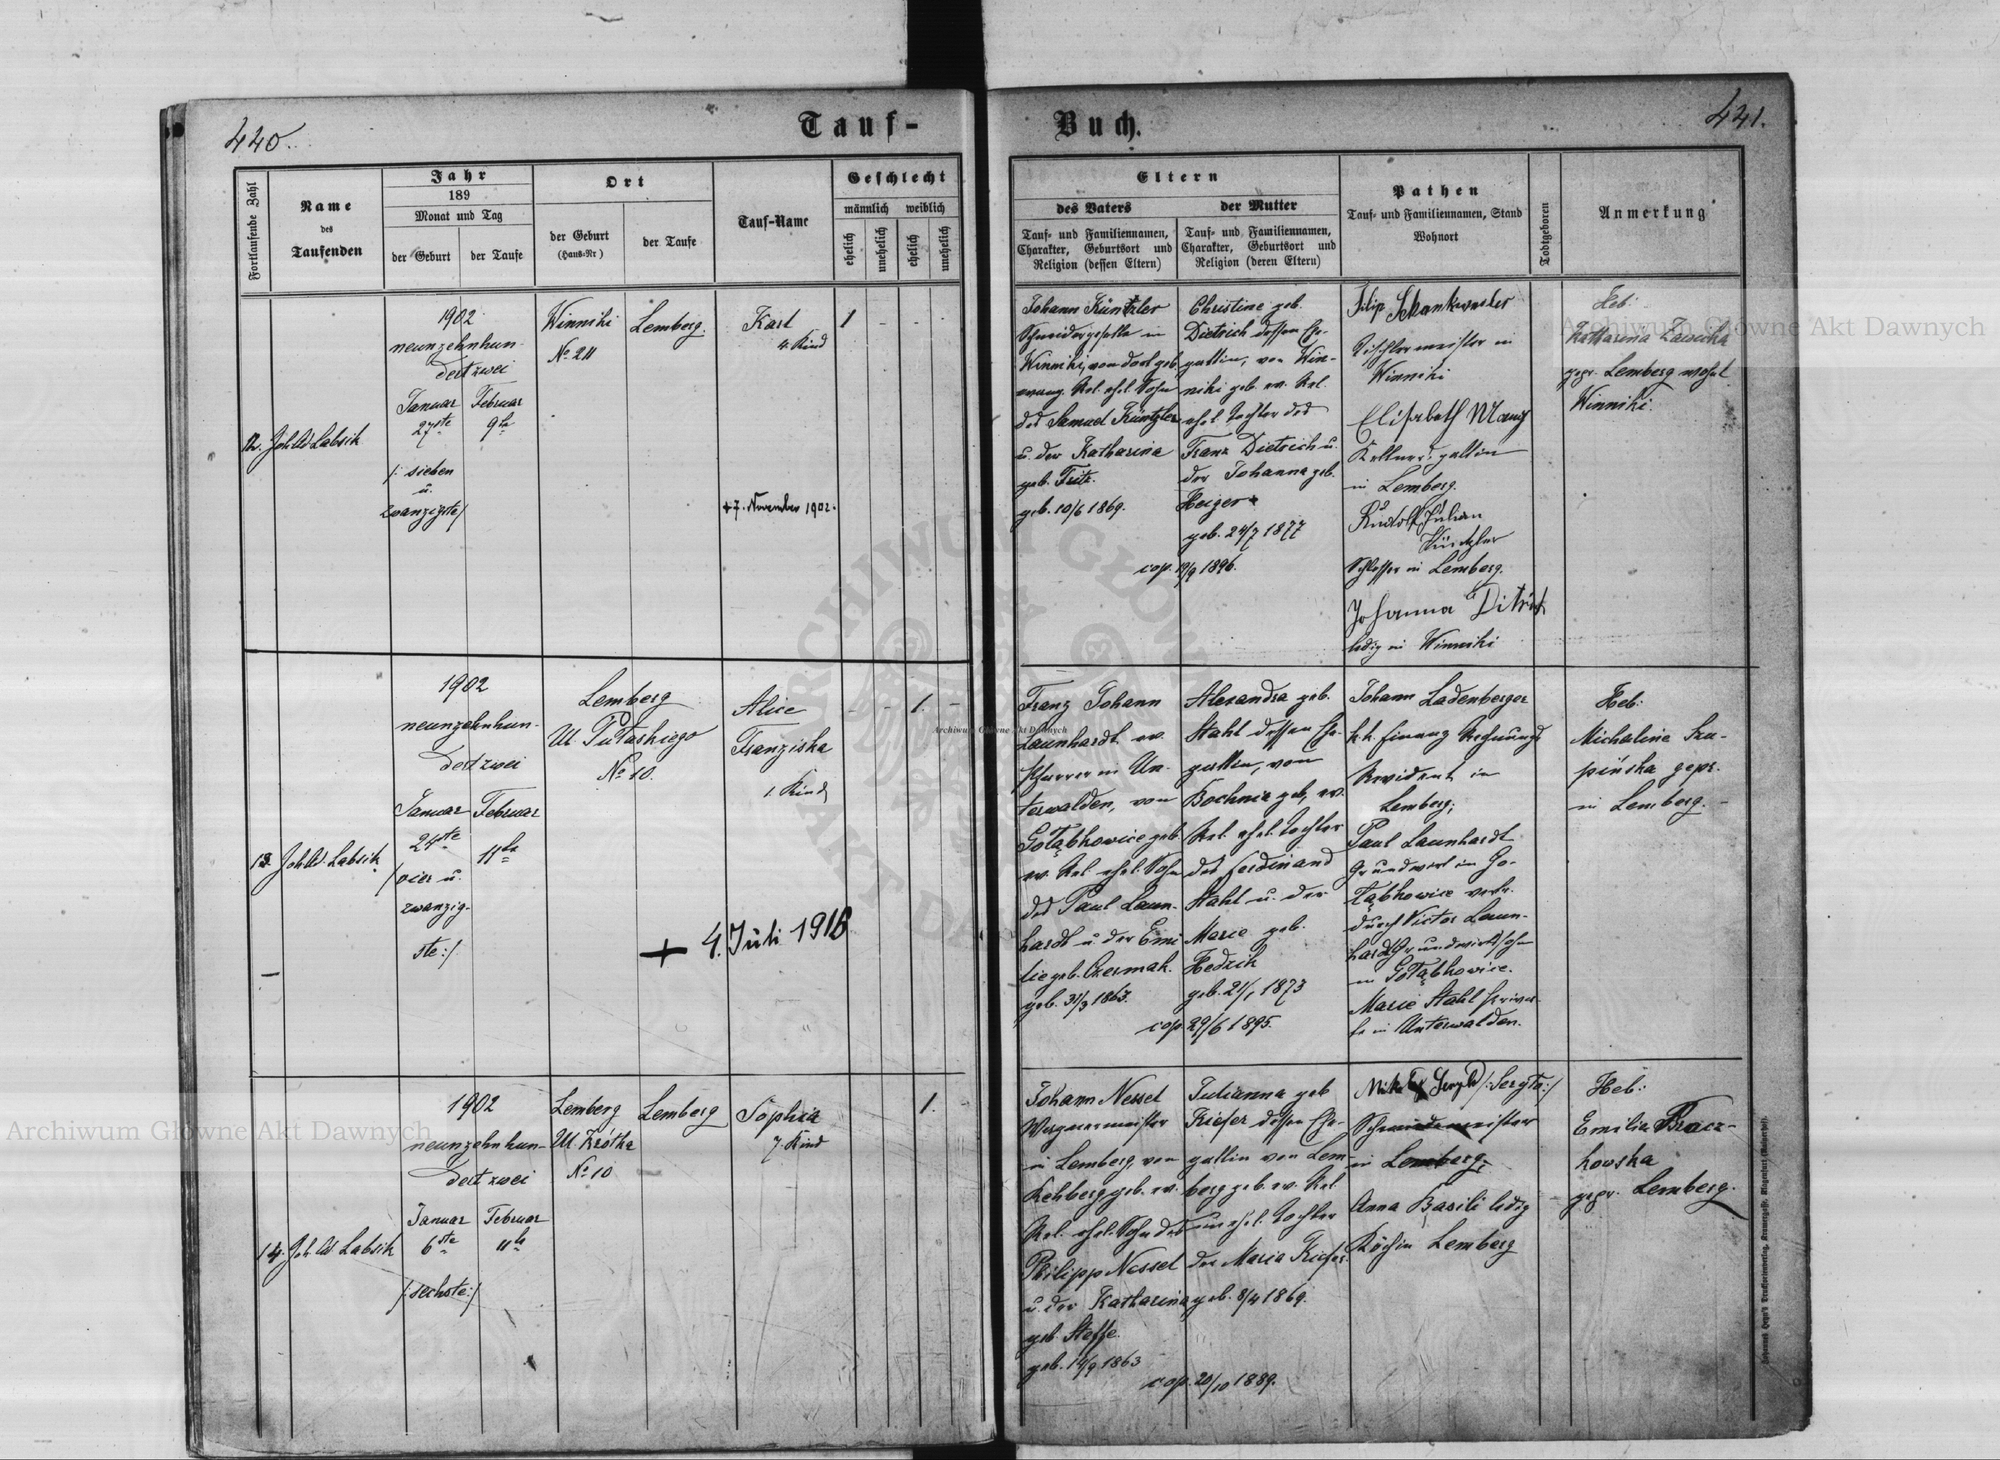 440.
Tauf-
Fortlaufende Zahl
Name
des
Taufenden
Jahr
189
Monat und Tag
der Geburt
der Taufe
Ort
der Geburt
(Haus-Nr)
der Taufe
Tauf-Name
Geschlecht
männlich
weiblich
ehelich
unehelich
ehelich
unehelich
12.
Joh. Labsik
1902
neunzehnhun-
dert zwei
Januar
27ste
/: sieben
u.
zwanzigste/
Februar
9te
Winniki
No 211
Lemberg.
Karl
4. Kind
+ 7. November 1902.
1
13.
Joh. Labsik
1902
neunzehnhun-
dert zwei
Januar
24ste
/vier u.
zwanzig-
ste:/
Februar
11te
Lemberg
Ul. Pułaskiego
No 10.
Alice
Franziska
1. Kind
+ 4. Juli 1918
1.
14.
Joh. Labsik
1902
neunzehnhun-
dert zwei
Januar
6ste
/: sechste:/
Februar
11te
Lemberg
Ul. Krótka
No 10
Lemberg
Sophia
7. Kind
1.
Buch.
441.
Eltern
des Vaters
Tauf- und Familiennamen,
Charakter, Geburtsort und
Religion (dessen Eltern)
der Mutter
Tauf- und Familiennamen,
Charakter, Geburtsort und
Religion (deren Eltern)
Pathen
Tauf- und Familiennamen, Stand
Wohnort
Todtgeboren
Anmerkung
Johann Küntzler
Schneidergeselle in
Winniki, von dort geb.
evang. Rel. ehel. Sohn
des Samuel Küntzler
u. der Katharina
geb. Fritz.
geb. 10/6 1869.
Christine geb.
Dietrich dessen Ehe-
gattin, von Win-
niki geb. ev. Rel.
ehel. Tochter des
Franz Dietrich u.
der Johanna geb.
Heiger
geb. 24/7 1877
cop. 19/9 1896.
Filip
Tischlermeister in
Winniki
Elisabeth Mang
Kellners gattin
in Lemberg.
Rudolf Julian
Küntzler
Schlosser in Lemberg.
Johanna Ditrich
ledig in Winniki
Heb:
Katharina Zawicka
gepr. Lemberg wohnt
Winniki.
Franz Johann
Launhardt ev.
Pfarrer in Un-
terwalden, von
Gołąbkowice geb.
ev. Rel. ehel. Sohn
des Paul Laun-
hardt u. der Emi
lie geb. Czermak.
geb. 31/3 1863.
Alexandra geb.
Stahl dessen Ehe-
gattin, von
Bochnia geb. ev.
Rel. ehel. Tochter
des Ferdinand
Stahl u. der
Marie geb.
Hedzik
geb. 21/1 1873
cop 29/6 1895.
Johann Ladenberger
k. k. Finanz Rechnungs
Revident in
Lemberg;
Paul Launhardt
Grundwirt in Go-
łąbkowice vertr.
durch Victor Laun-
hardt Grundwirtssohn
in Gołąbkowice.
Marie Stahl
in Unterwalden.
Heb:
Michaline Szu-
pińska gepr.
in Lemberg.
Johann Nessel
Wagnermeister
in Lemberg, von
Kehberg geb. ev.
Rel. ehel. Sohn des
Philipp Nessel
u. der Katharina
geb. Steffe.
geb. 14/9 1863
Julianna geb
Kiefer dessen Ehe-
gattin von Lem-
berg geb. ev. Rel
unehel. Tochter
der Maria Kiefer.
geb. 8/4 1869.
cop. 20/10 1889.
/: Sergta:/
Schmiedemeister
in Lemberg;
Anna Basili ledig
Köchin Lemberg
Heb:
Emilia Bracz-
kowska
gepr. Lemberg.
Archiwum Główne Akt Dawnych
Archiwum Główne Akt Dawnych
Archiwum Główne Akt Dawnych